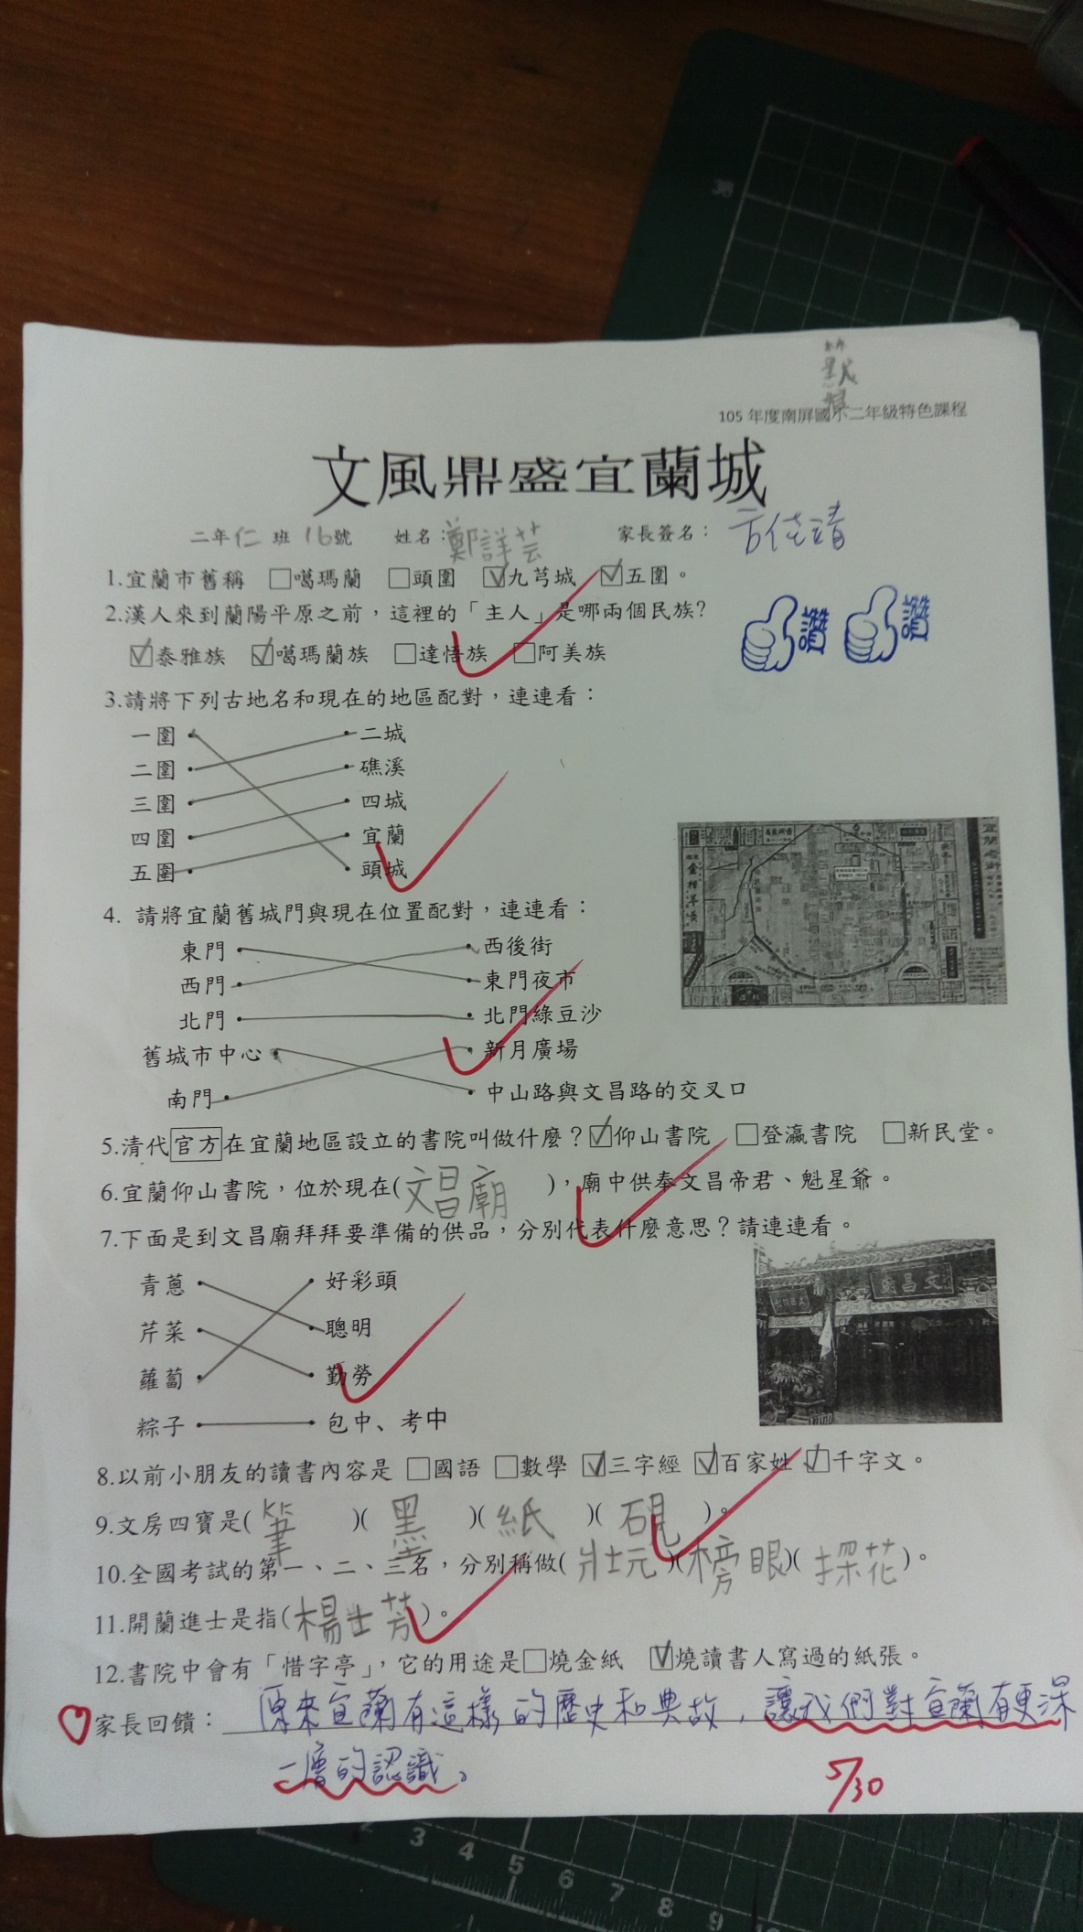 105 年度南屏國小二年級特色課程
文風鼎盛宜蘭城
二年仁班16號 姓名：鄭詳芸 家長簽名：方佳靖
1.宜蘭市舊稱 □噶瑪蘭 □頭圍 ☑九芎城 ☑五圍。
2.漢人來到蘭陽平原之前，這裡的「主人」是哪兩個民族?
☑泰雅族 ☑噶瑪蘭族 □達悟族 □阿美族
讚 讚
3.請將下列古地名和現在的地區配對，連連看：
一圍 二城
二圍 礁溪
三圍 四城
四圍 宜蘭
五圍 頭城
4. 請將宜蘭舊城門與現在位置配對，連連看：
東門 西後街
西門 東門夜市
北門 北門綠豆沙
舊城市中心 新月廣場
南門 中山路與文昌路的交叉口
5.清代官方在宜蘭地區設立的書院叫做什麼？☑仰山書院 □登瀛書院 □新民堂。
6.宜蘭仰山書院，位於現在(文昌廟)，廟中供奉文昌帝君、魁星爺。
7.下面是到文昌廟拜拜要準備的供品，分別代表什麼意思？請連連看。
青蔥 好彩頭
芹菜 聰明
蘿蔔 勤勞
粽子 包中、考中
文昌廟
8.以前小朋友的讀書內容是 □國語 □數學 ☑三字經 ☑百家姓 ☑千字文。
9.文房四寶是(筆)(墨)(紙)(硯)。
10.全國考試的第一、二、三名，分別稱做(狀元)(榜眼)(探花)。
11.開蘭進士是指(楊士芳)。
12.書院中會有「惜字亭」，它的用途是□燒金紙 ☑燒讀書人寫過的紙張。
家長回饋：原來宜蘭有這樣的歷史和典故，讓我們對宜蘭有更深
一層的認識。
5/30
2 3 4 5 6 7 8 9